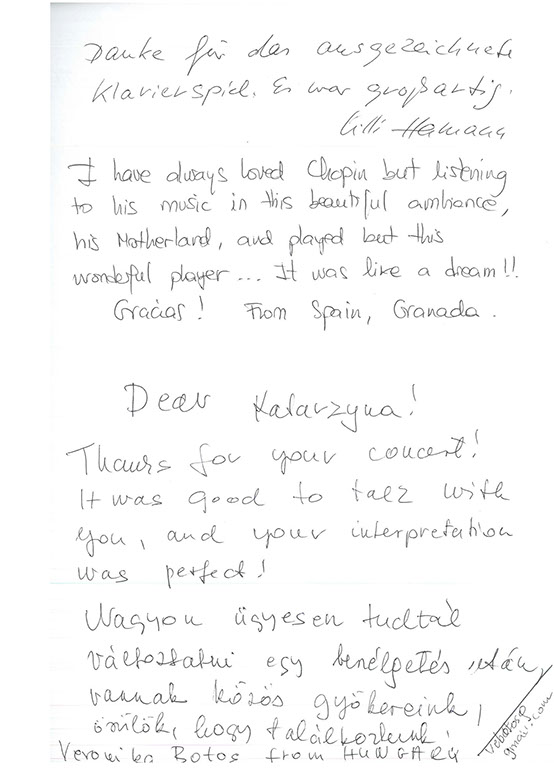 Danke für das ausgezeichnete
Klavierspiel. Es war großartig.
Lilli Hemann
I have always loved Chopin but listening
to his music in this beautiful ambiance,
his Motherland, and played but this
wonderful player... It was like a dream!!
Gracias! From Spain, Granada.
Dear Katarzyna!
Thanks for your concert!
It was good to talk with
you, and your interpretation
was perfect!
Nagyon ügyesen tudtál
változtatni egy beszélgetés után,
vannak közös gyökereink,
örülök, hogy találkoztunk!
Veronika Botos from HUNGARY
gmail.com